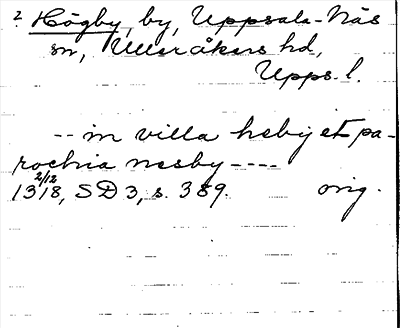 ? Högby, by, Uppsala-Näs
sn, Ulleråkers hd,
Upps. l.
-- in villa heby et pa-
rochia nesby ----
2/12
1318, SD 3, s. 389. orig.